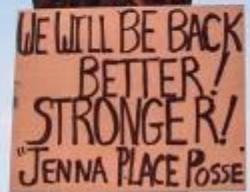 WE WILL BE BACK
BETTER!
STRONGER!
"JENNA PLACE POSSE"